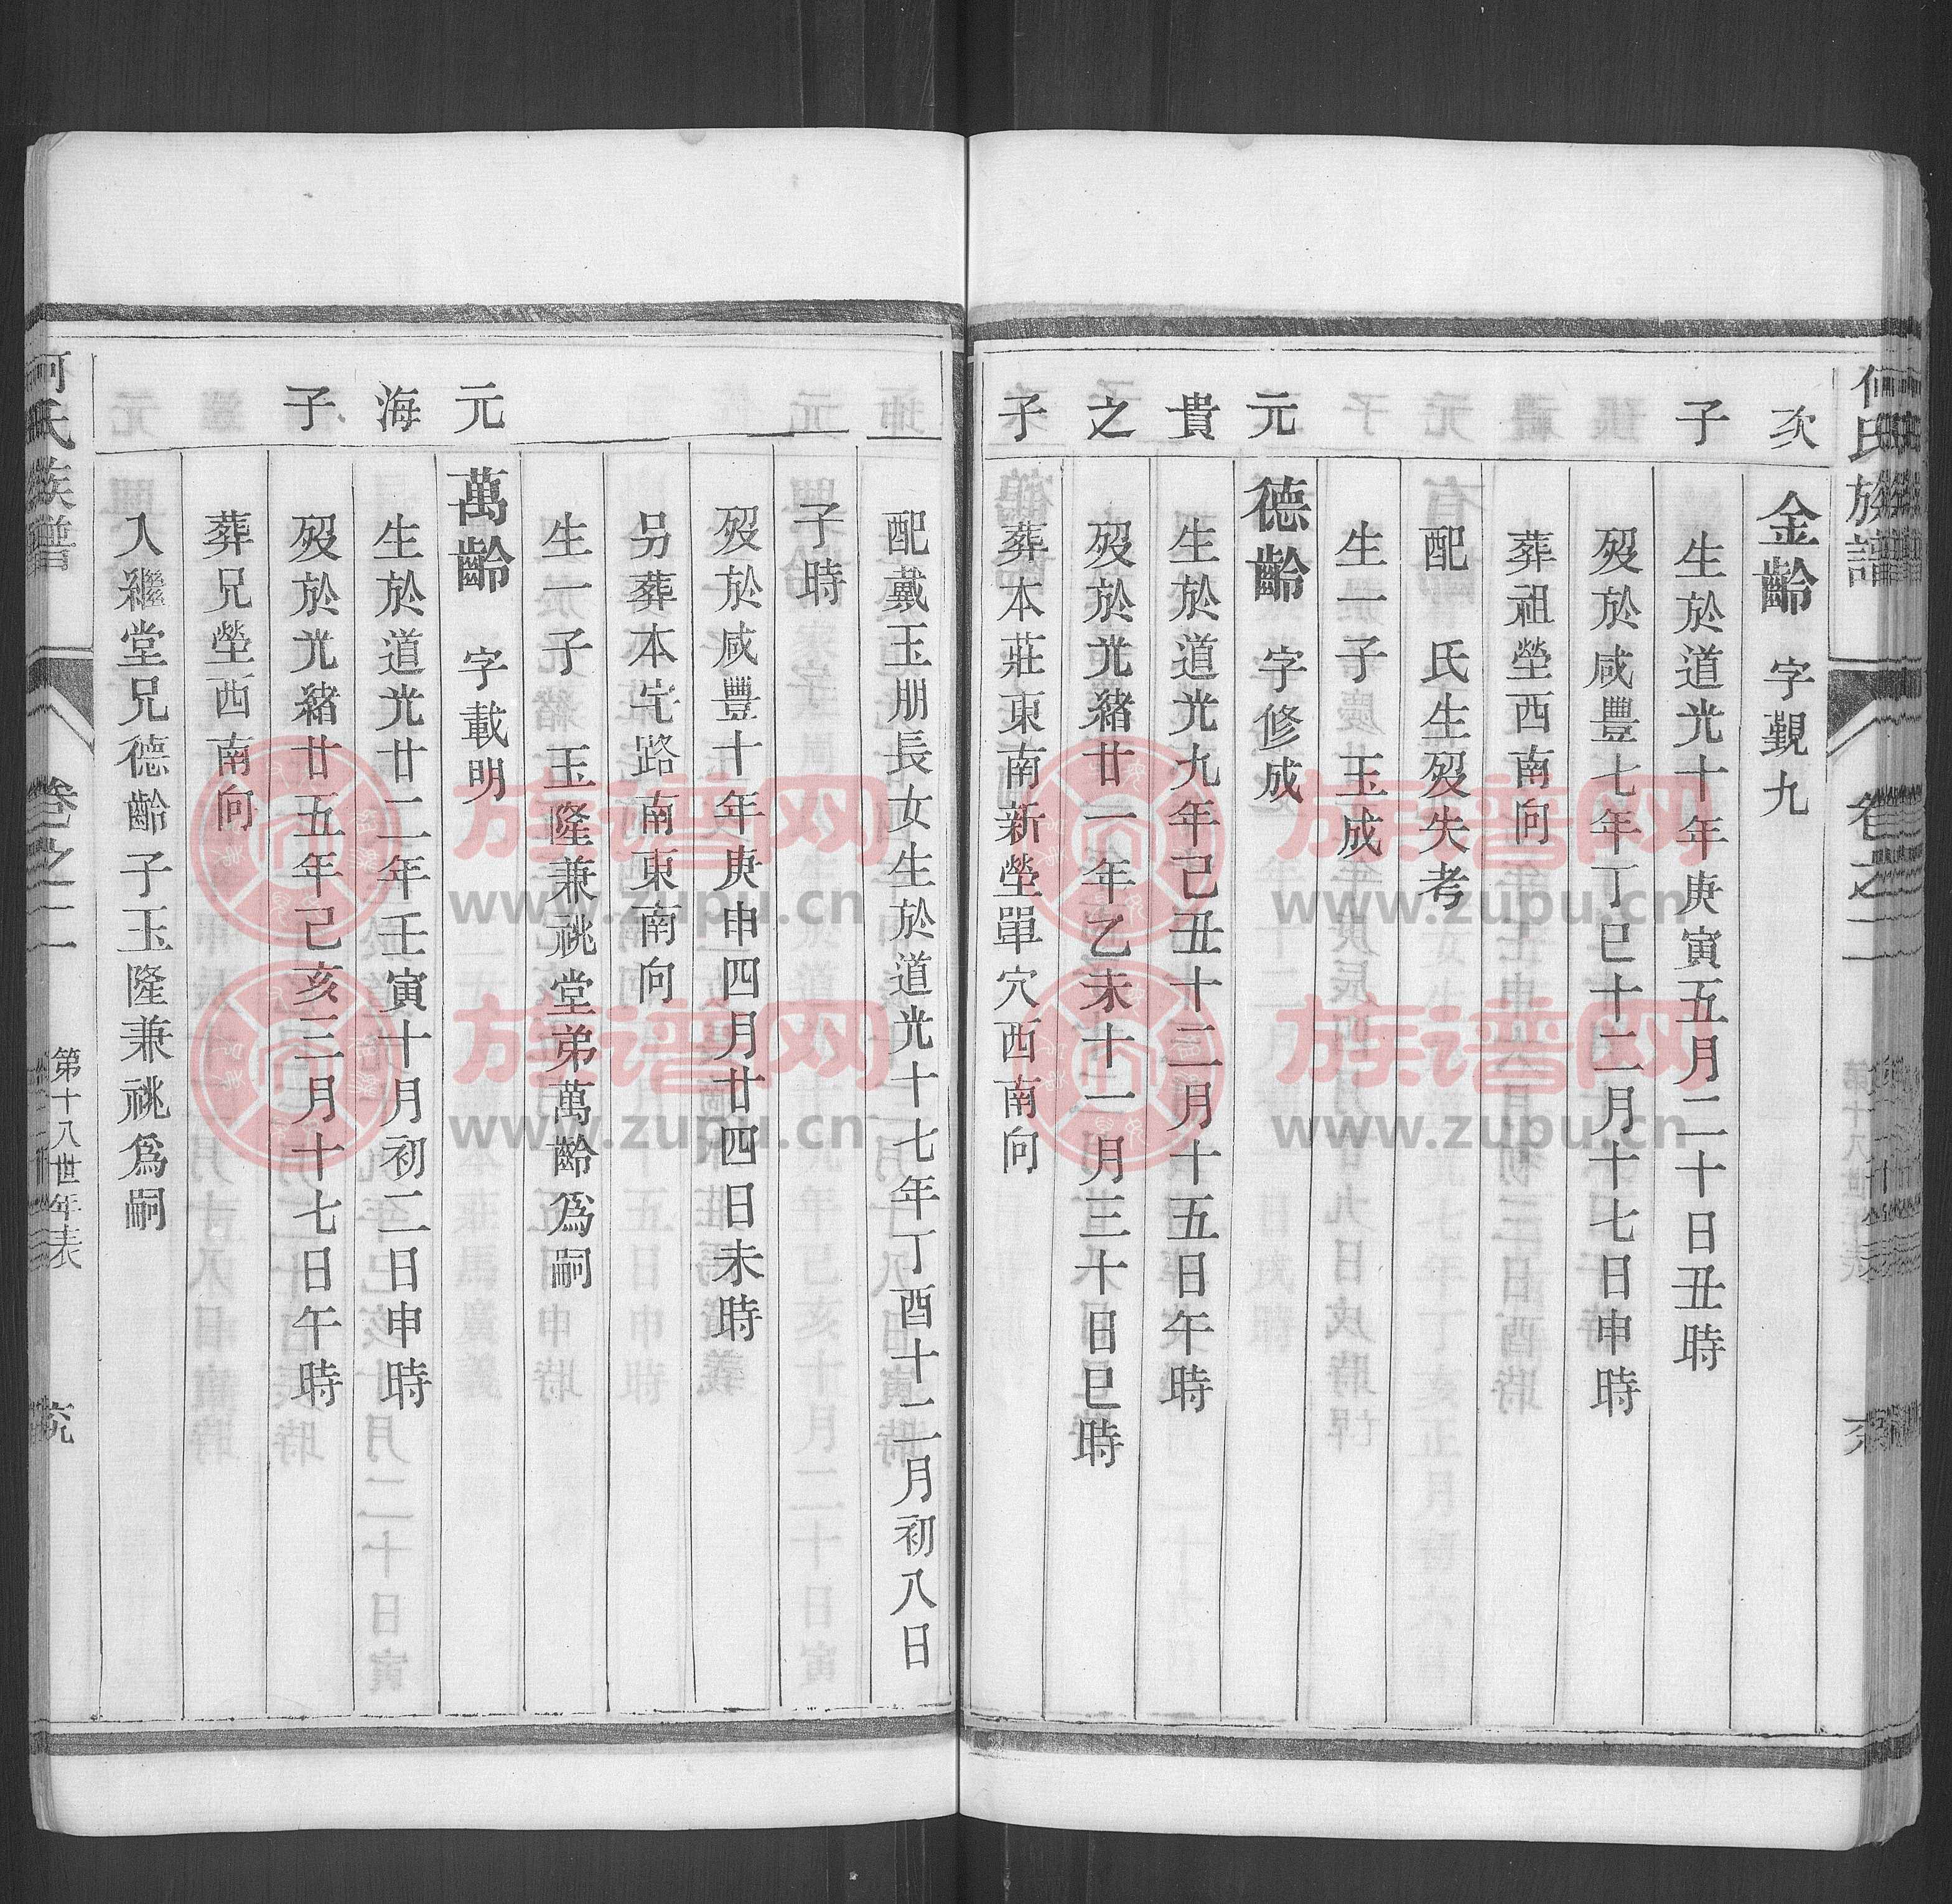 何氏族譜
卷之二
次
子
金齡 字覲九
生於道光十年庚寅五月二十日丑時
歿於咸豐七年丁巳十二月十七日申時
葬祖塋西南向
配 氏生歿失考
生一子 玉成
元
貴
之
子
德齡 字修成
生於道光九年己丑十二月十五日午時
歿於光緒廿一年乙未十一月三十日巳時
葬本莊東南新塋單穴西南向
配戴玉朋長女生於道光十七年丁酉十二月初八日
子時
歿於咸豐十年庚申四月廿四日未時
另葬本宅路南東南向
生一子 玉隆兼祧堂弟萬齡爲嗣
元
海
子
萬齡 字載明
生於道光廿二年壬寅十月初二日申時
歿於光緒廿五年己亥三月十七日午時
葬兄塋西南向
入繼堂兄德齡子玉隆兼祧爲嗣
何氏族譜
卷之二
第十八世年表
族谱网
www.zupu.cn
族谱网
www.zupu.cn
族谱网
www.zupu.cn
族谱网
www.zupu.cn